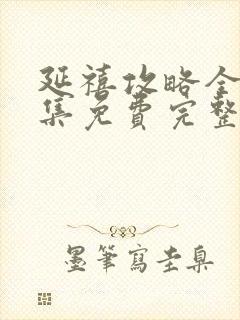 延禧攻略全
集免費完整
墨筆寫圭臬